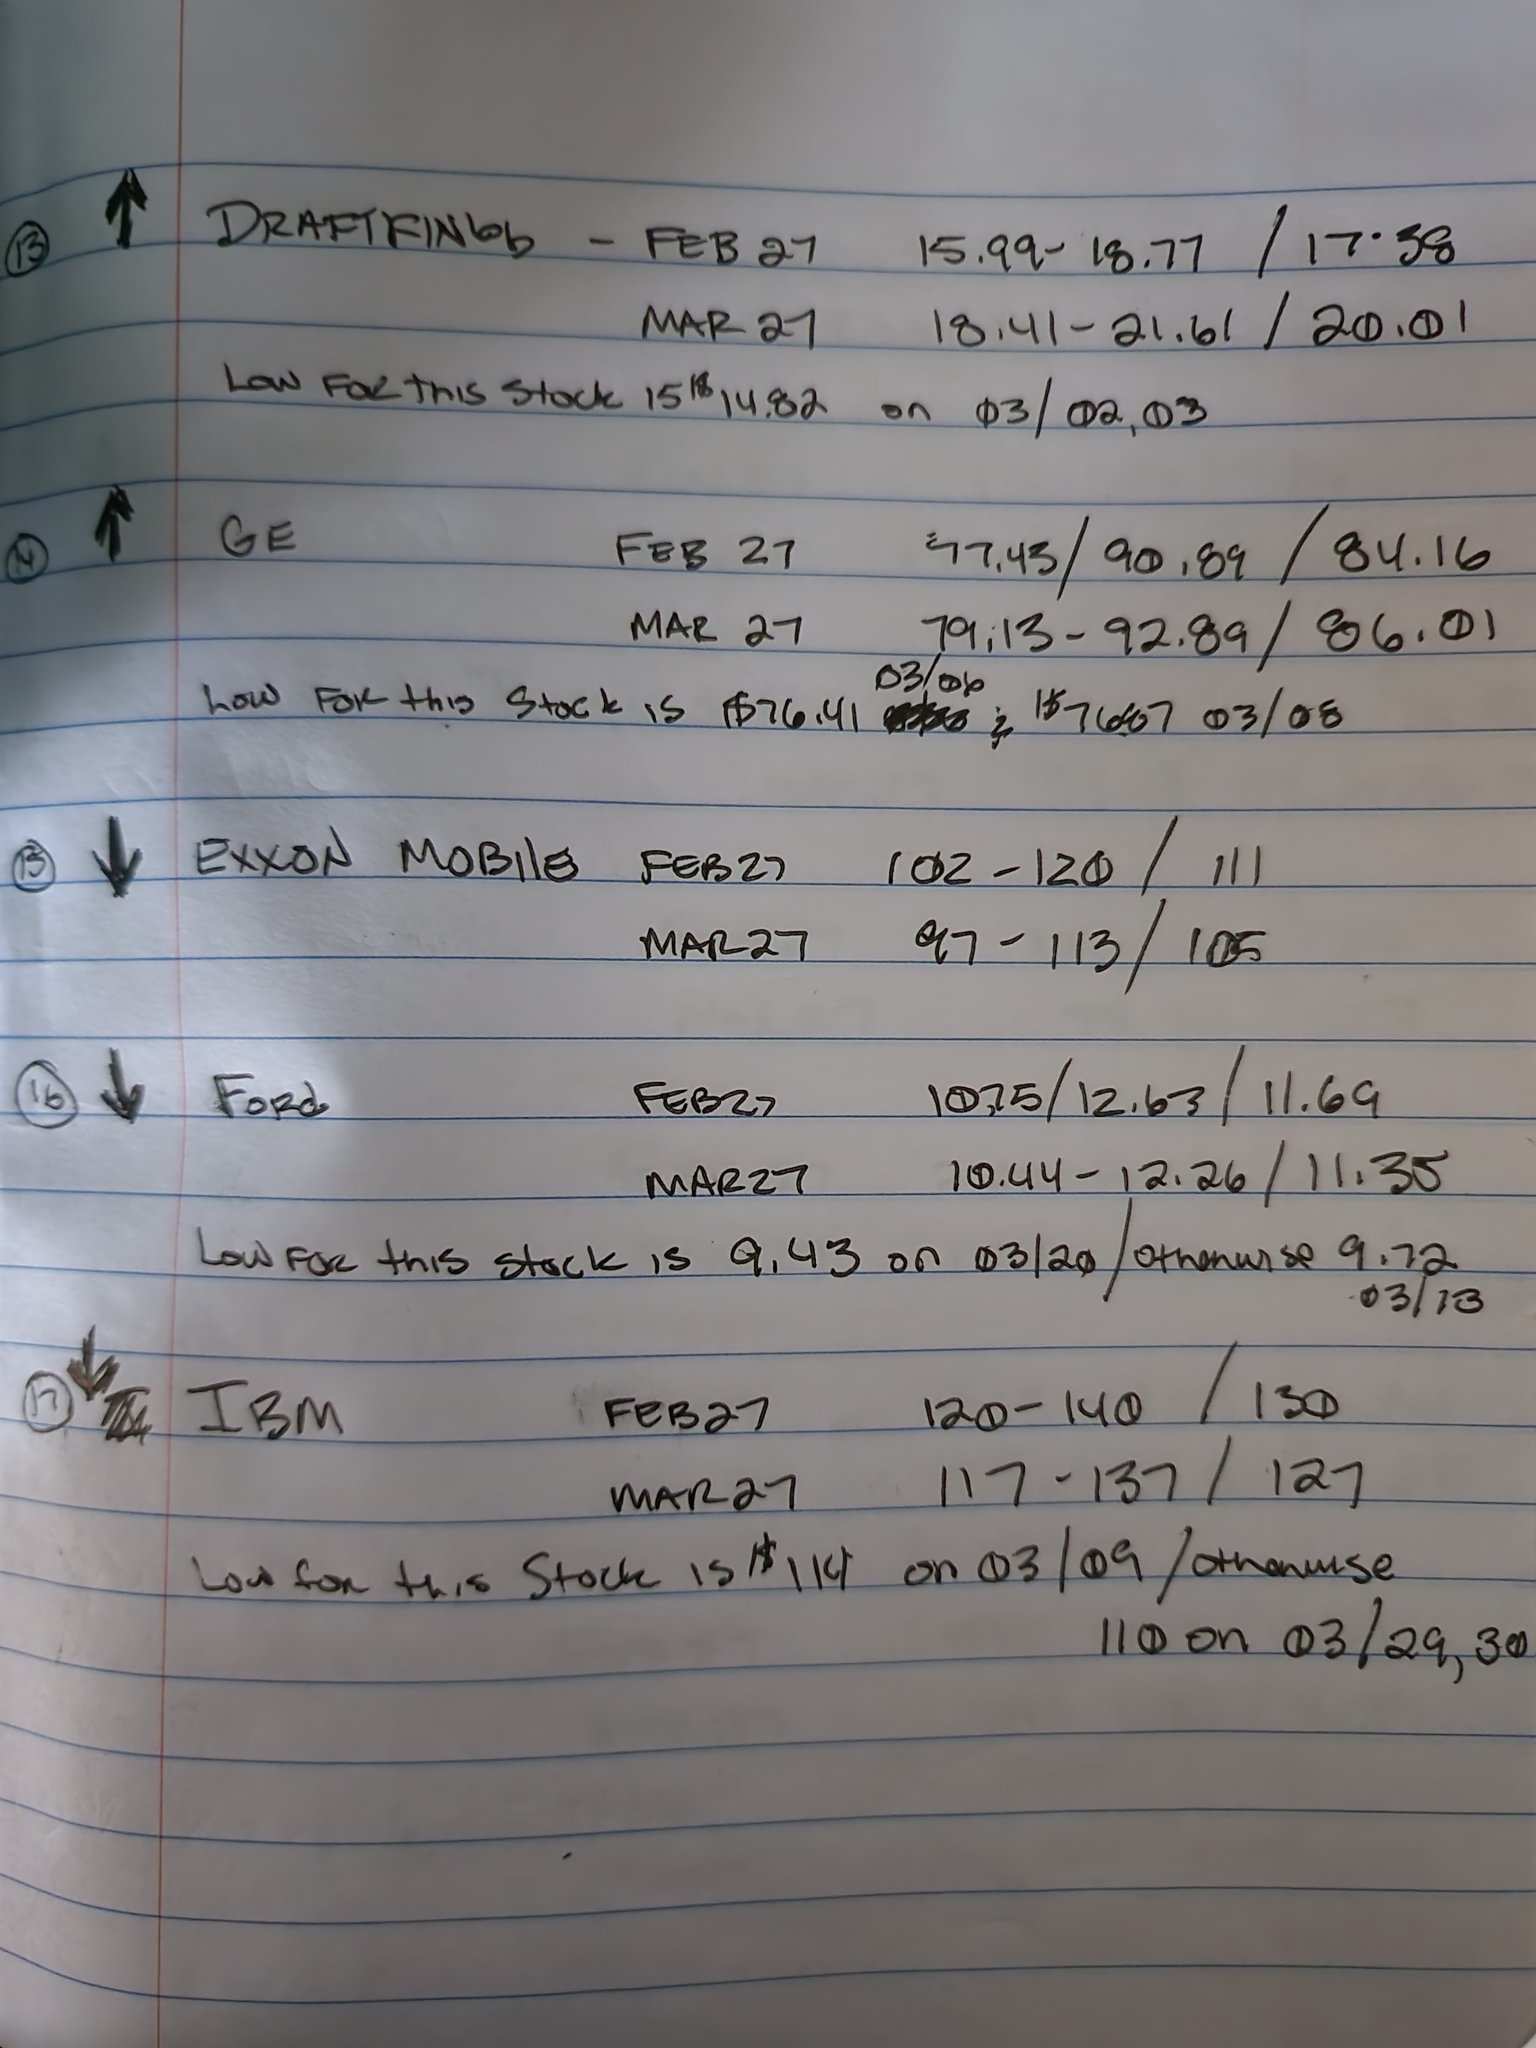 13 ↑ DRAFTKINGS - FEB 27 15.99 - 18.77 / 17.38
MAR 27 18.41 - 21.61 / 20.01
Low For this Stock is $14.82 on 03/02,03
14 ↑ GE FEB 27 77.43 / 90.89 / 84.16
MAR 27 79.13 - 92.89 / 86.01
03/06
Low For this Stock is $76.41 & $76.87 03/08
15 ↓ EXXON MOBILE FEB 27 102 - 120 / 111
MAR 27 97 - 113 / 105
16 ↓ Ford FEB 27 10.75 / 12.63 / 11.69
MAR 27 10.44 - 12.26 / 11.35
Low For this stock is 9.43 on 03/20 / otherwise 9.72
03/13
17 ↓ IBM FEB 27 120 - 140 / 130
MAR 27 117 - 137 / 127
Low for this Stock is $114 on 03/09 / otherwise
110 on 03/29,30